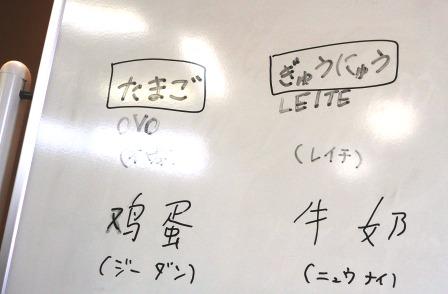 たまご
OVO
鸡蛋
(ジーダン)
ぎゅうにゅう
LEITE
(レイチ)
牛奶
(ニュウナイ)